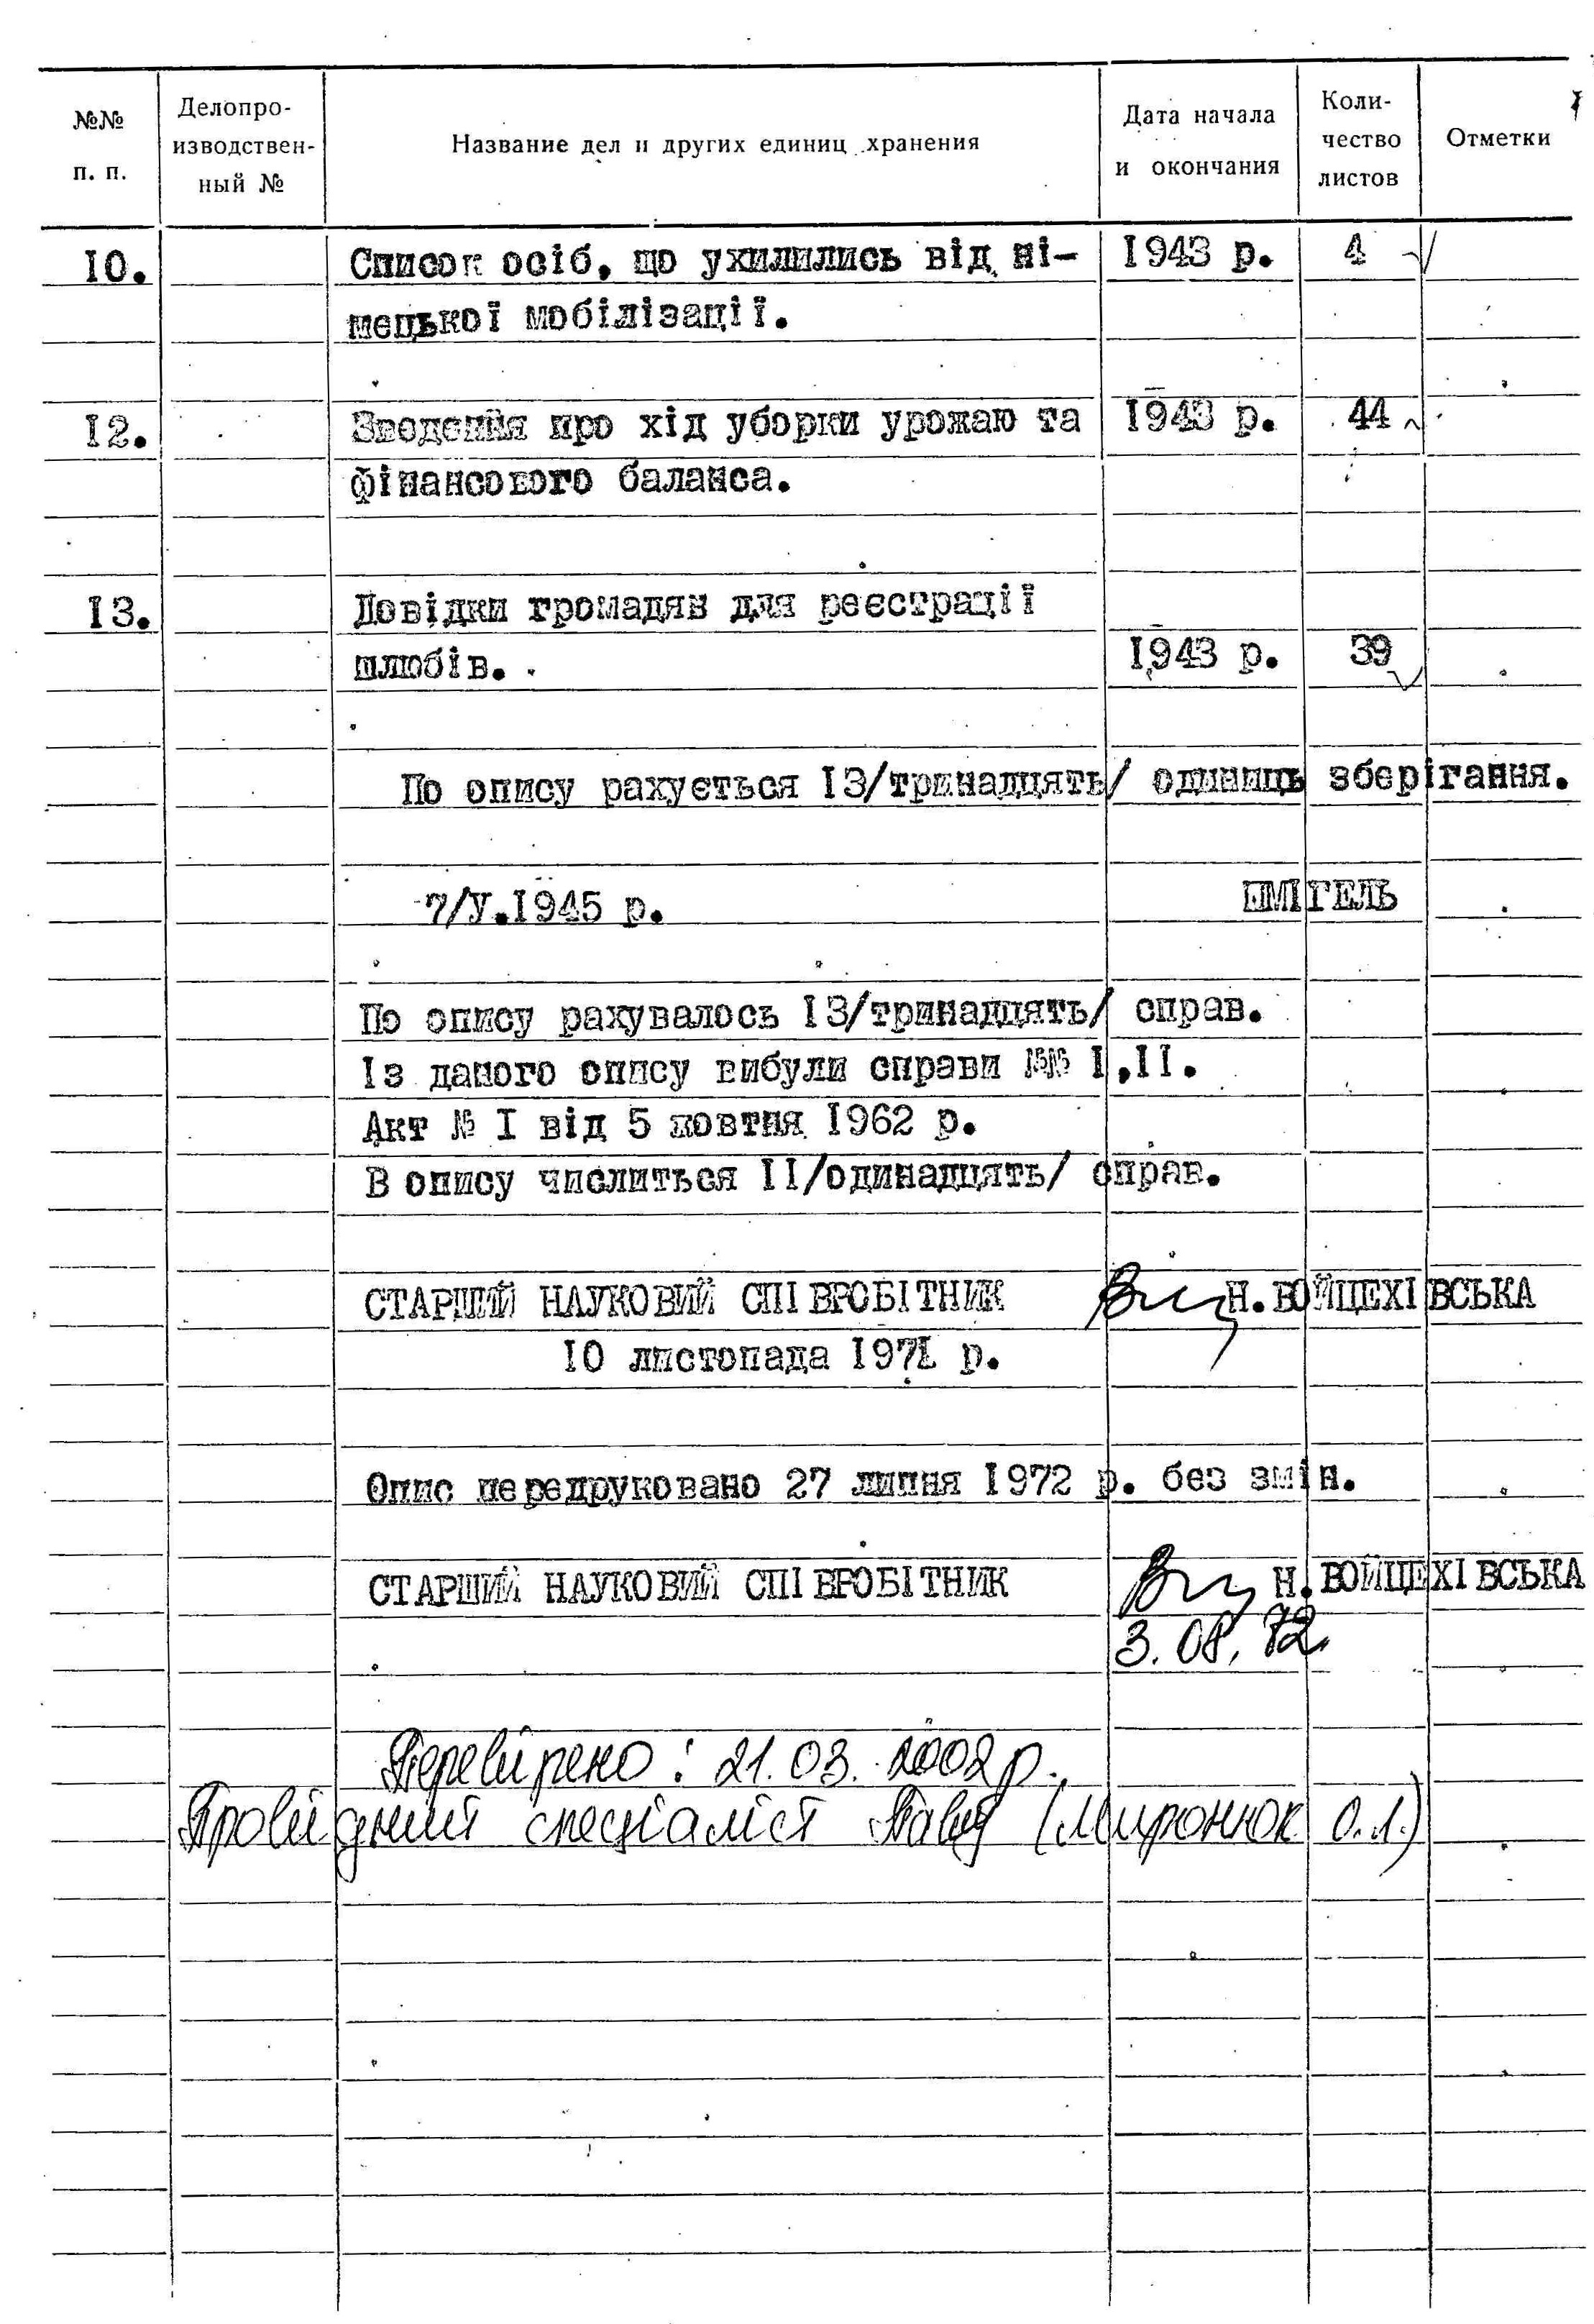 №№ п. п. Делопро-изводствен-ный № Название дел и других единиц хранения Дата начала и окончания Коли-чество листов Отметки
10. Список осіб, що ухилились від ні- 1943 р. 4
мецької мобілізації.
12. Зведення про хід уборки урожаю та 1943 р. 44
фінансового баланса.
13. Довідки громадян для реєстрації
шлюбів. 1943 р. 39
По опису рахується 13/тринадцять/ одиниць зберігання.
7/У.1945 р. ШМІГЕЛЬ
По опису рахувалось 13/тринадцять/ справ.
Із даного опису вибули справи №№ 1,11.
Акт № 1 від 5 жовтня 1962 р.
В опису числиться 11/одинадцять/ справ.
СТАРШИЙ НАУКОВИЙ СПІВРОБІТНИК Н.ВОЙЦЕХІВСЬКА
10 листопада 1971 р.
Опис передруковано 27 липня 1972 р. без змін.
СТАРШИЙ НАУКОВИЙ СПІВРОБІТНИК Н.ВОЙЦЕХІВСЬКА
3.08.72
Перевірено: 21.03.2002р.
Провідний спеціаліст (Миронюк О.Л.)